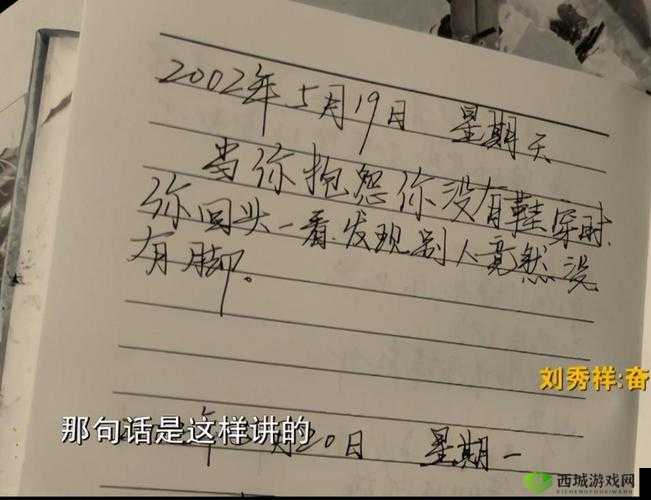 2002年5月19日 星期天
当你抱怨你没有鞋穿时,
你回头一看发现别人竟然没
有脚.
刘秀祥:奋
那句话是这样讲的
年 月20日 星期一
西城游戏网